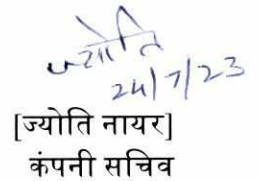 ज्योति
24/7/23
[ज्योति नायर]
कंपनी सचिव